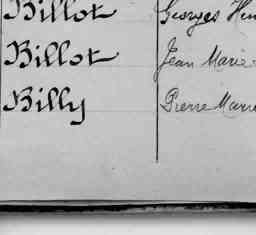 Billot Georges Hen
Billot Jean Marie
Billy Pierre Marie